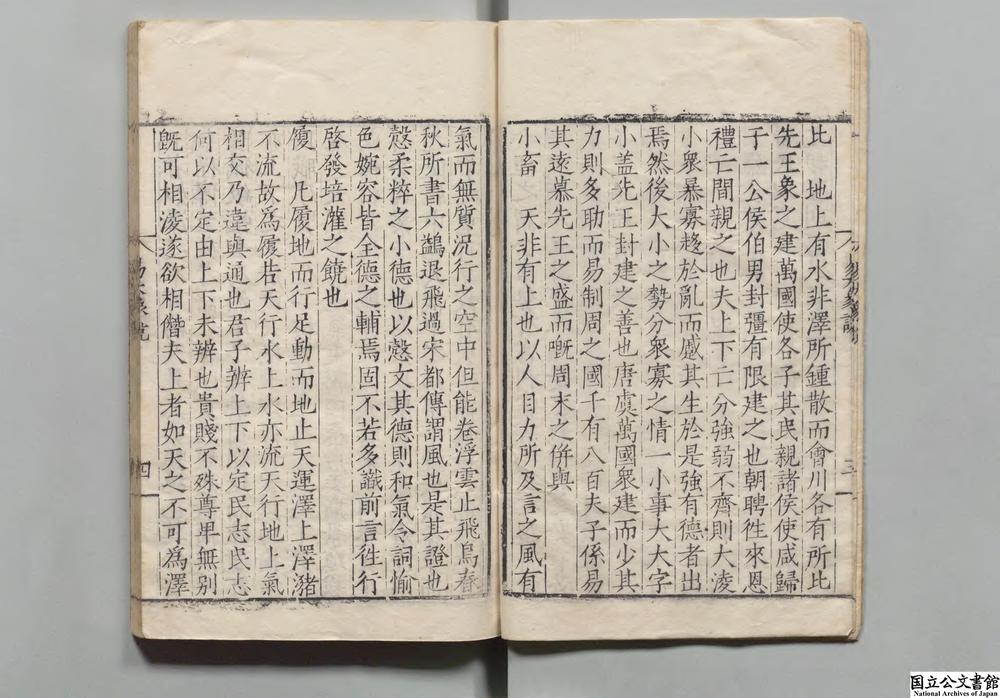 比　地上有水非澤所鍾散而會川各有所比
先王象之建萬國使各子其民親諸侯使咸歸
于一公侯伯男封彊有限建之也朝聘徃來恩
禮亡間親之也夫上下亡分強弱不齊則大淩
小衆暴寡趍於亂而蹙其生於是強有德者出
焉然後大小之勢分衆寡之情一小事大大字
小盖先王封建之善也唐虞萬國衆建而少其
力則多助而易制周之國千有八百夫子係易
其逺慕先王之盛而嘅周末之併與
小畜　天非有上也以人目力所及言之風有
三
氣而無質況行之空中但能卷浮雲止飛鳥春
秋所書六鷁退飛過宋都傳謂風也是其證也
慤柔粹之小德也以慤文其德則和氣令詞愉
色婉容皆全德之輔焉固不若多識前言徃行
啓發培灌之饒也
履　凡履地而行足動而地止天運澤上澤豬
不流故爲履若天行水上水亦流天行地上氣
相交乃違與通也君子辨上下以定民志民志
何以不定由上下未辨也貴賤不殊尊卑無别
旣可相淩遂欲相僭夫上者如天之不可爲澤
四
国立公文書館
National Archives of Japan